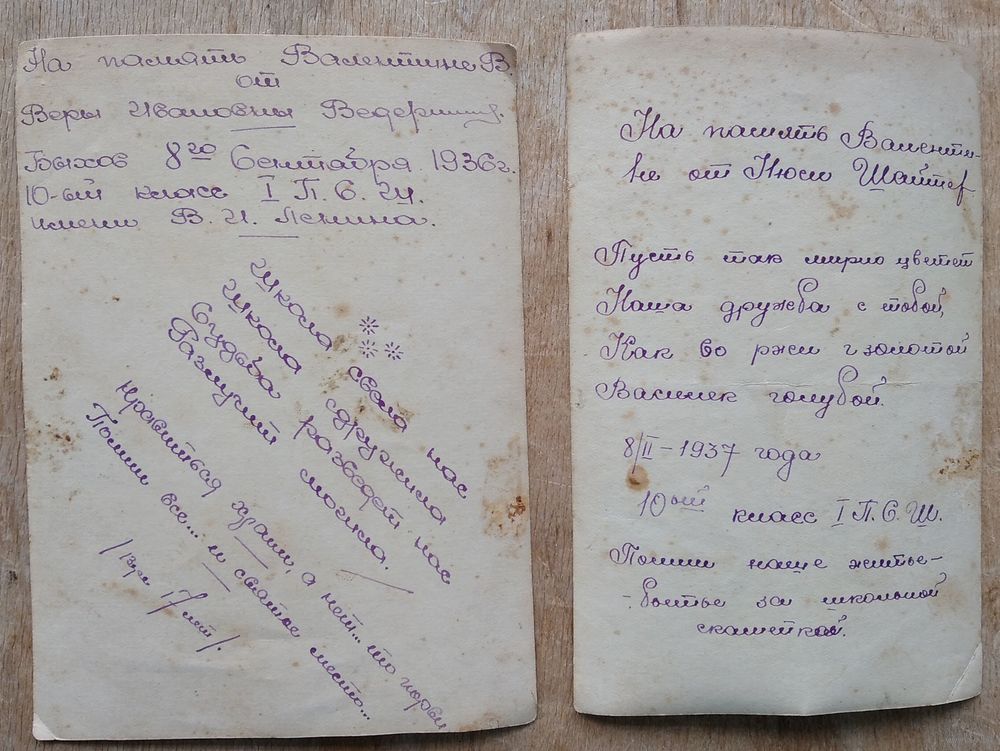 На память Валентине В.
от
Веры Ивановны
Быхов 8го Сентября 1936 г.
10-ый класс I П.С.Ш.
имени В. И. Ленина.
Школа свела нас
Школа сдружила
Судьба разведет нас
Разлучит могила.
Нравиться храни, а нет... то порви
Помни все... и святое место...
17 лет/.
На память Валенти-
не от Нюси
Пусть так мирно цветет
Наша дружба с тобой,
Как во ржи золотой
Василек голубой.
8/II - 1937 года
10ый класс I П.С.Ш.
Помни наше житье-
-бытье за школьной
скамейкой.